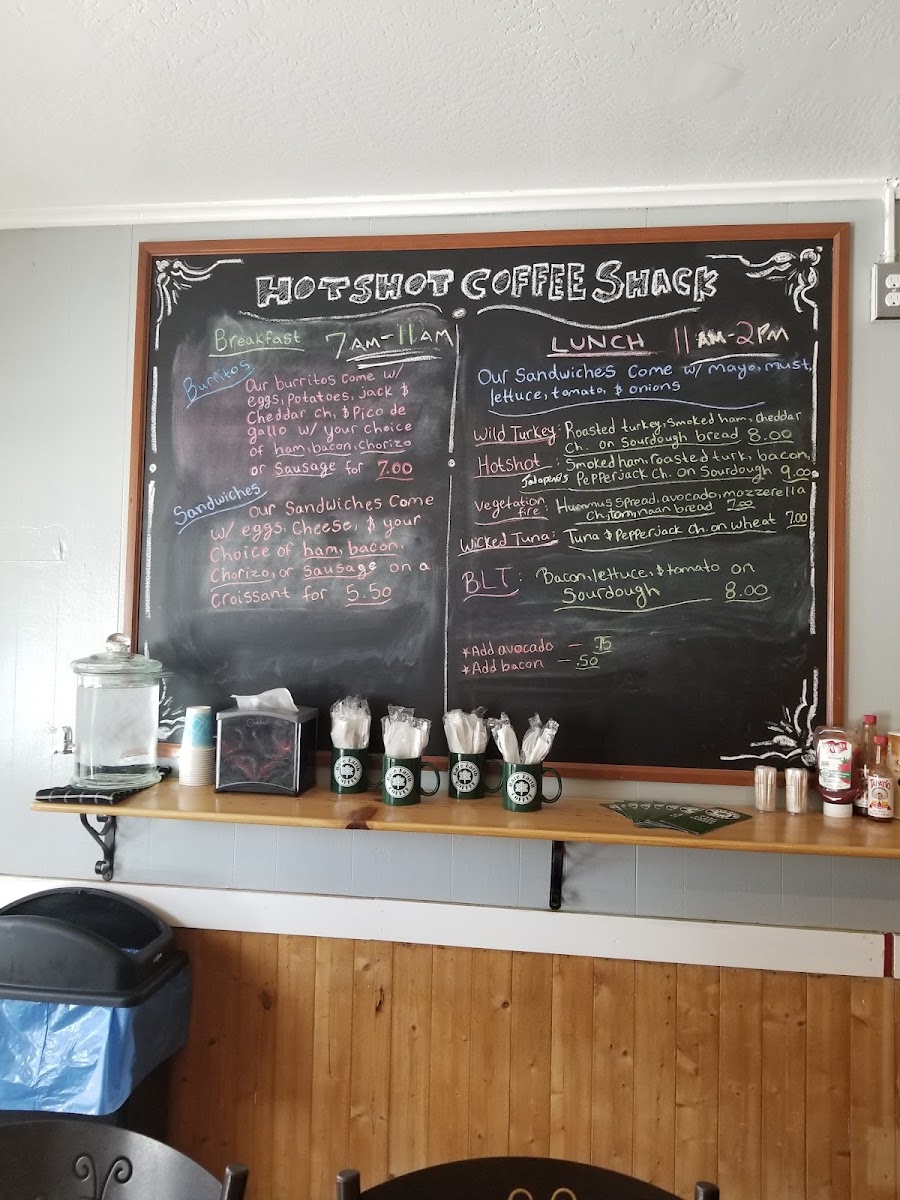 HOTSHOT COFFEE SHACK
Breakfast 7AM-11AM
Burritos
Our burritos come w/
eggs, potatoes, jack &
Cheddar ch. & Pico de
gallo w/ your choice
of ham, bacon, chorizo
or Sausage for 7.00
Sandwiches
Our Sandwiches Come
w/ eggs, cheese, & your
Choice of ham, bacon,
Chorizo, or Sausage on a
Croissant for 5.50
LUNCH 11AM-2PM
Our Sandwiches Come w/ mayo, must,
lettuce, tomato, & onions
Wild Turkey: Roasted turkey, smoked ham, cheddar
Ch. on Sourdough bread 8.00
Hotshot: Smoked ham, roasted turk, bacon,
Jalapeños Pepperjack ch. on Sourdough 9.00
Vegetation
fire: Hummus spread, avocado, mozzerella
Ch, tom, naan bread 7.00
Wicked Tuna: Tuna & Pepperjack Ch. on wheat 7.00
BLT: Bacon, lettuce, & tomato on
Sourdough 8.00
*Add avocado — .75
*Add bacon — .50
TAPATIO